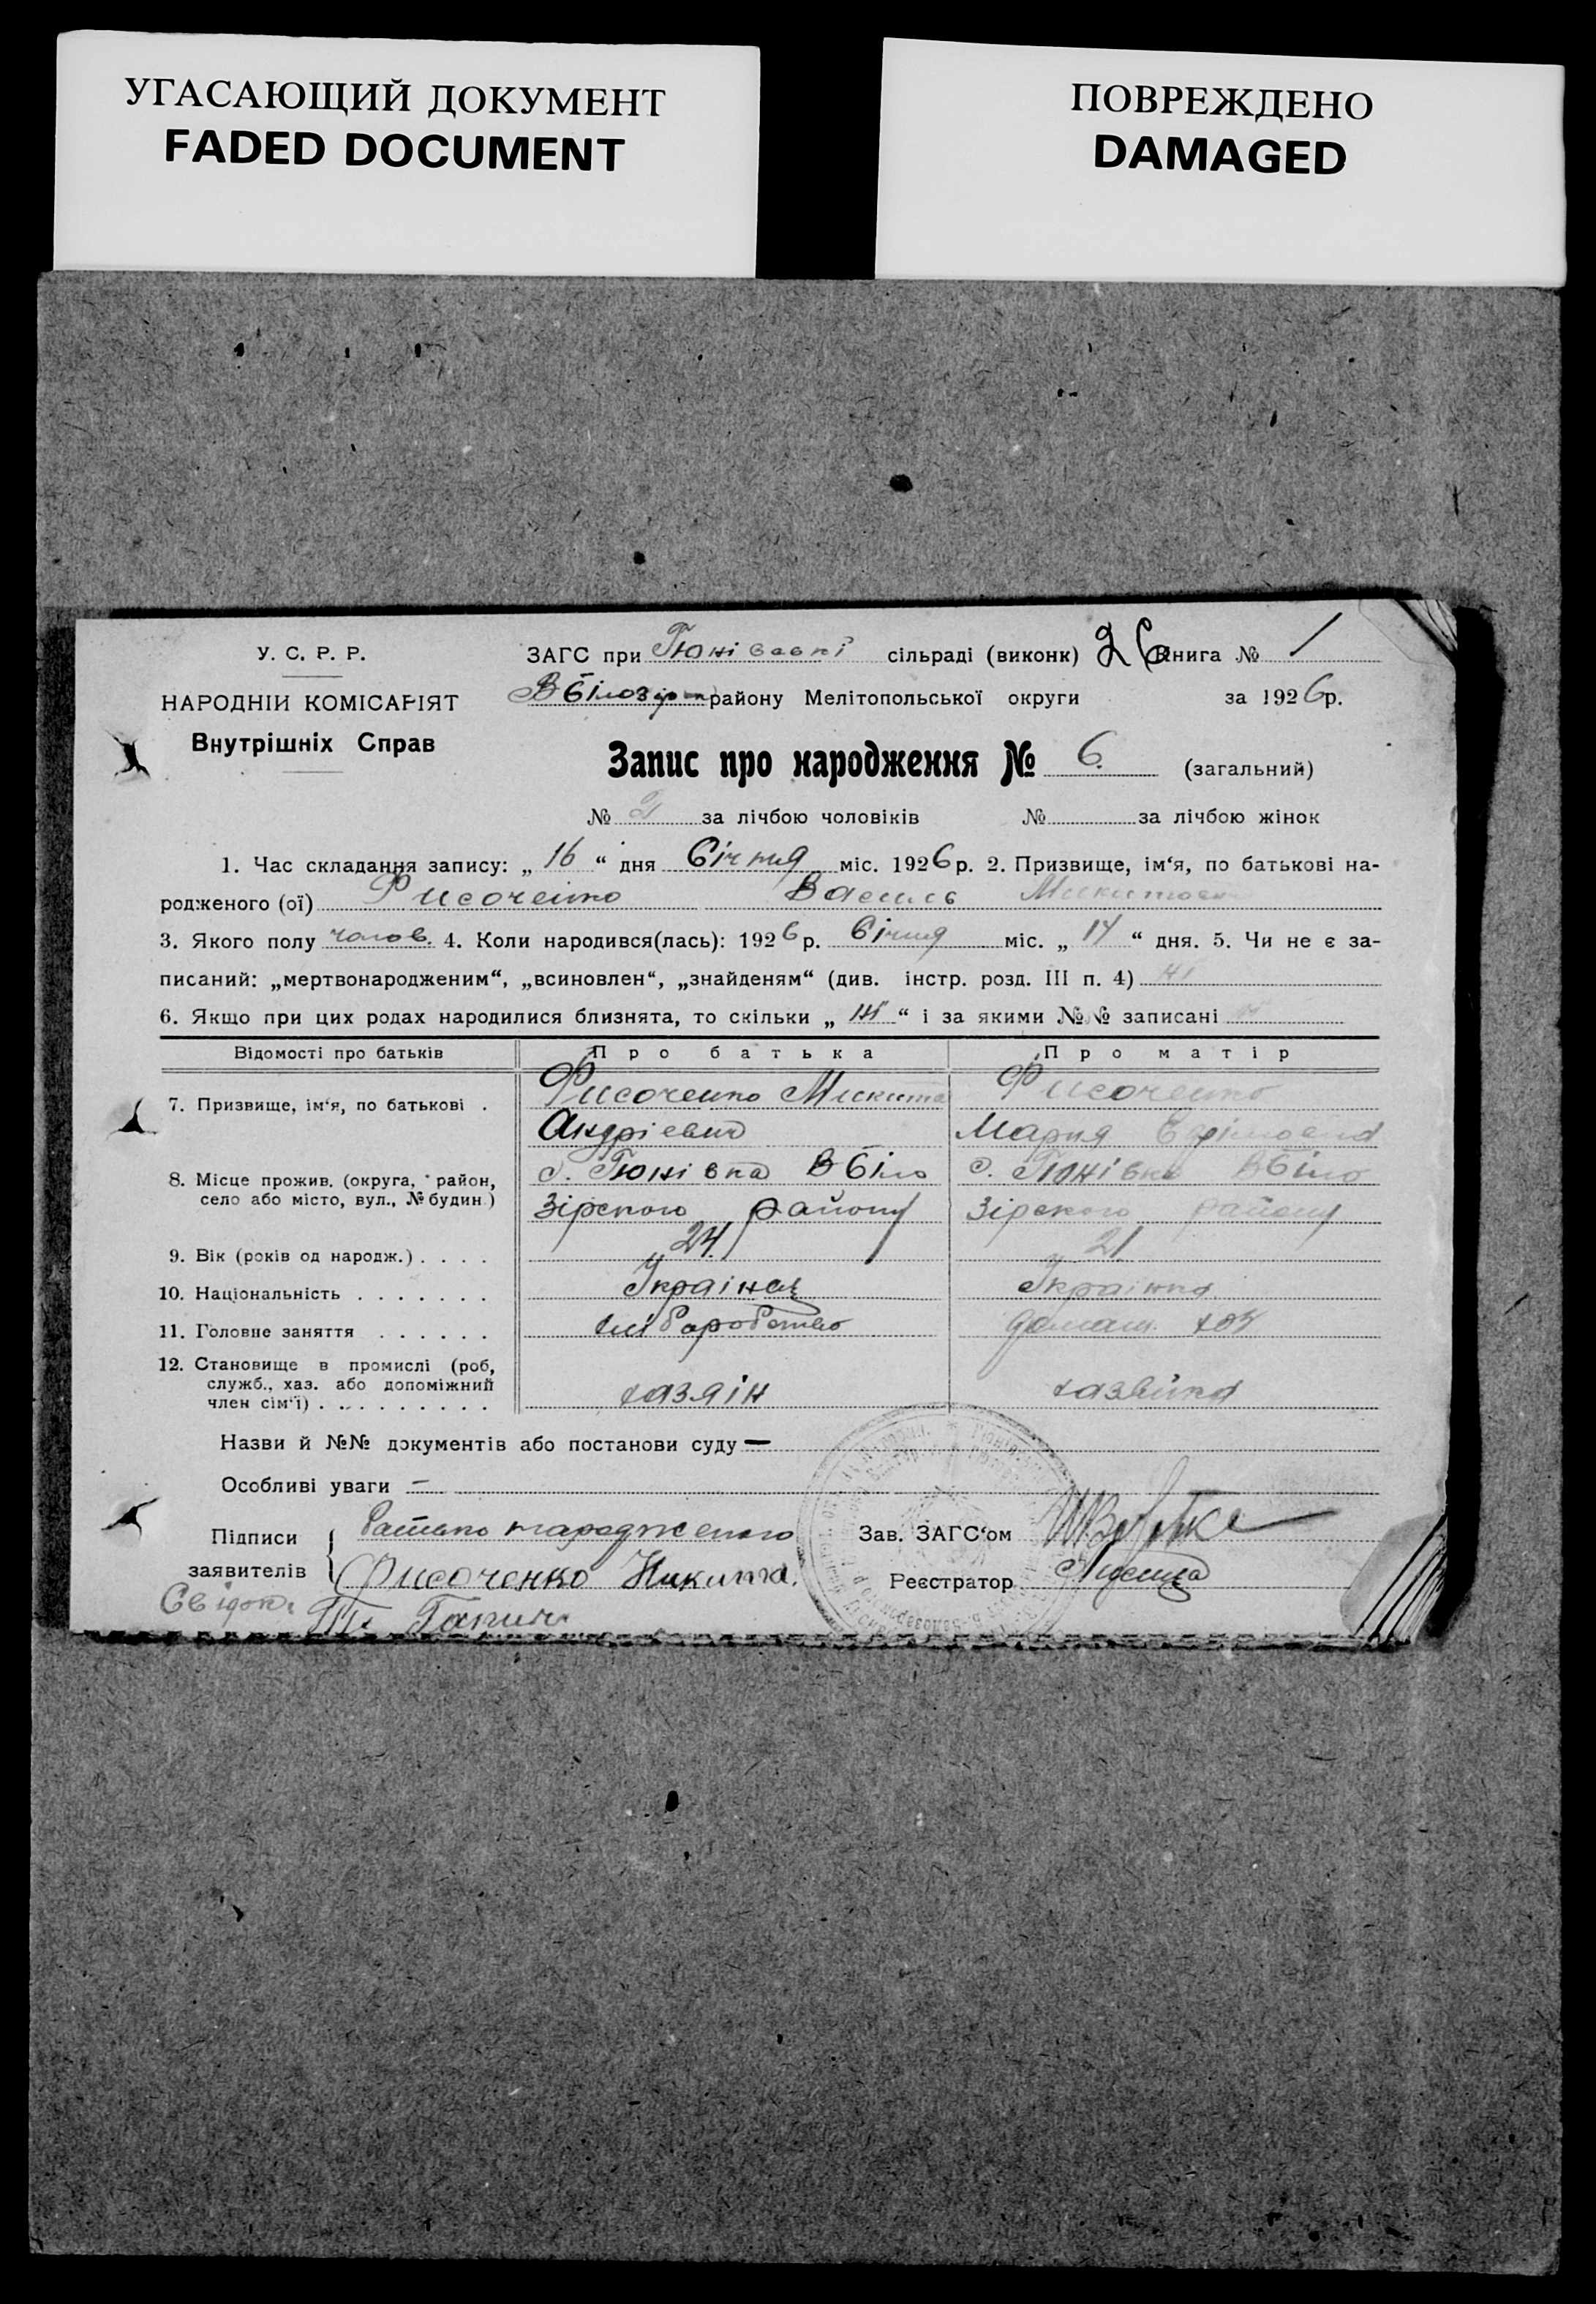 УГАСАЮЩИЙ ДОКУМЕНТ
FADED DOCUMENT
ПОВРЕЖДЕНО
DAMAGED
У. С. Р. Р.
НАРОДНІЙ КОМІСАРІЯТ
Внутрішніх Справ
ЗАГС при Гюнівскі сільраді (виконк) 26 Книга № 1
ВБілозір району Мелітопольської округи за 1926 р.
Запис про народження № 6. (загальний)
№ за лічбою чоловіків № за лічбою жінок
1. Час складання запису: „ 16 “ дня Січня міс. 1926 р. 2. Призвище, ім‘я, по батькові на-
родженого (ої) Фисоченко Василь Микитов
3. Якого полу чолов. 4. Коли народився(лась): 1926 р. Січня міс. „ 14 “ дня. 5. Чи не є за-
писаний: „мертвонародженим“, „всиновлен“, „знайденям“ (див. інстр. розд. III п. 4) ні
6. Якщо при цих родах народилися близнята, то скільки „ ні “ і за якими №№ записані
Відомості про батьків Про батька Про матір
7. Призвище, ім‘я, по батькові . Фисоченко Микита Фисоченко
Андрієвич Мария
8. Місце прожив. (округа, район, с. Гюнівка ВБіло с. Гюнівка ВБіло
село або місто, вул., № будин.) зірского району зірского району
9. Вік (років од народж.) . . . . 24. 21.
10. Національність . . . . . . . Українец Українка
11. Головне заняття . . . . . . хліборобство домаш. хоз
12. Становище в промислі (роб,
служб., хаз. або допоміжний
член сім‘ї) . . . . . . . . . хазяін хазяйка
Назви й №№ документів або постанови суду —
Особливі уваги —
Підписи
заявителів
батько народженого
Фисоченко Никита.
Зав. ЗАГС‘ом
Реєстратор
Свідок: